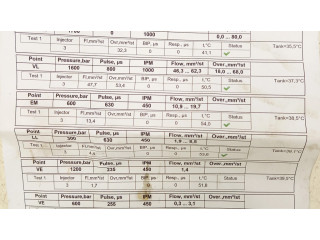 1700 0 0 0,0 ... 80,0
Test 1 Injector Fl,mm³/st Ovr,mm³/st BIP, µs Resp., µs t,°C Status Tank=35,5°C
3 32,3 0 0 41,1
Point Pressure,bar Pulse, µs IPM Flow, mm³/st Over.,mm³/st
VL 1600 800 1000 46,3 ... 62,3 10,0 ... 68,0
Test 1 Injector Fl,mm³/st Ovr,mm³/st BIP, µs Resp., µs t,°C Status Tank=37,3°C
3 47,7 53,4 0 0 50,3
Point Pressure,bar Pulse, µs IPM Flow, mm³/st
EM 600 630 450 10,9 ... 19,7
Test 1 Injector Fl,mm³/st Ovr,mm³/st BIP, µs Resp., µs t,°C Status
3 13,4 0 0 54,0
Point Pressure,bar Pulse, µs IPM Flow, mm³/st
LL 300 630 450
Test 1 Injector Fl,mm³/st Ovr,mm³/st BIP, µs Resp., µs t,°C Status
3 0 0
Point Pressure,bar Pulse, µs IPM Flow, mm³/st
VE 1200 235 450 1,4
Test 1 Injector Fl,mm³/st Ovr,mm³/st BIP, µs Resp., µs t,°C Status
3 1,7 0 0 51,8
Point Pressure,bar Pulse, µs IPM Flow, mm³/st
VE 800 255 450 0,3 ... 3,1